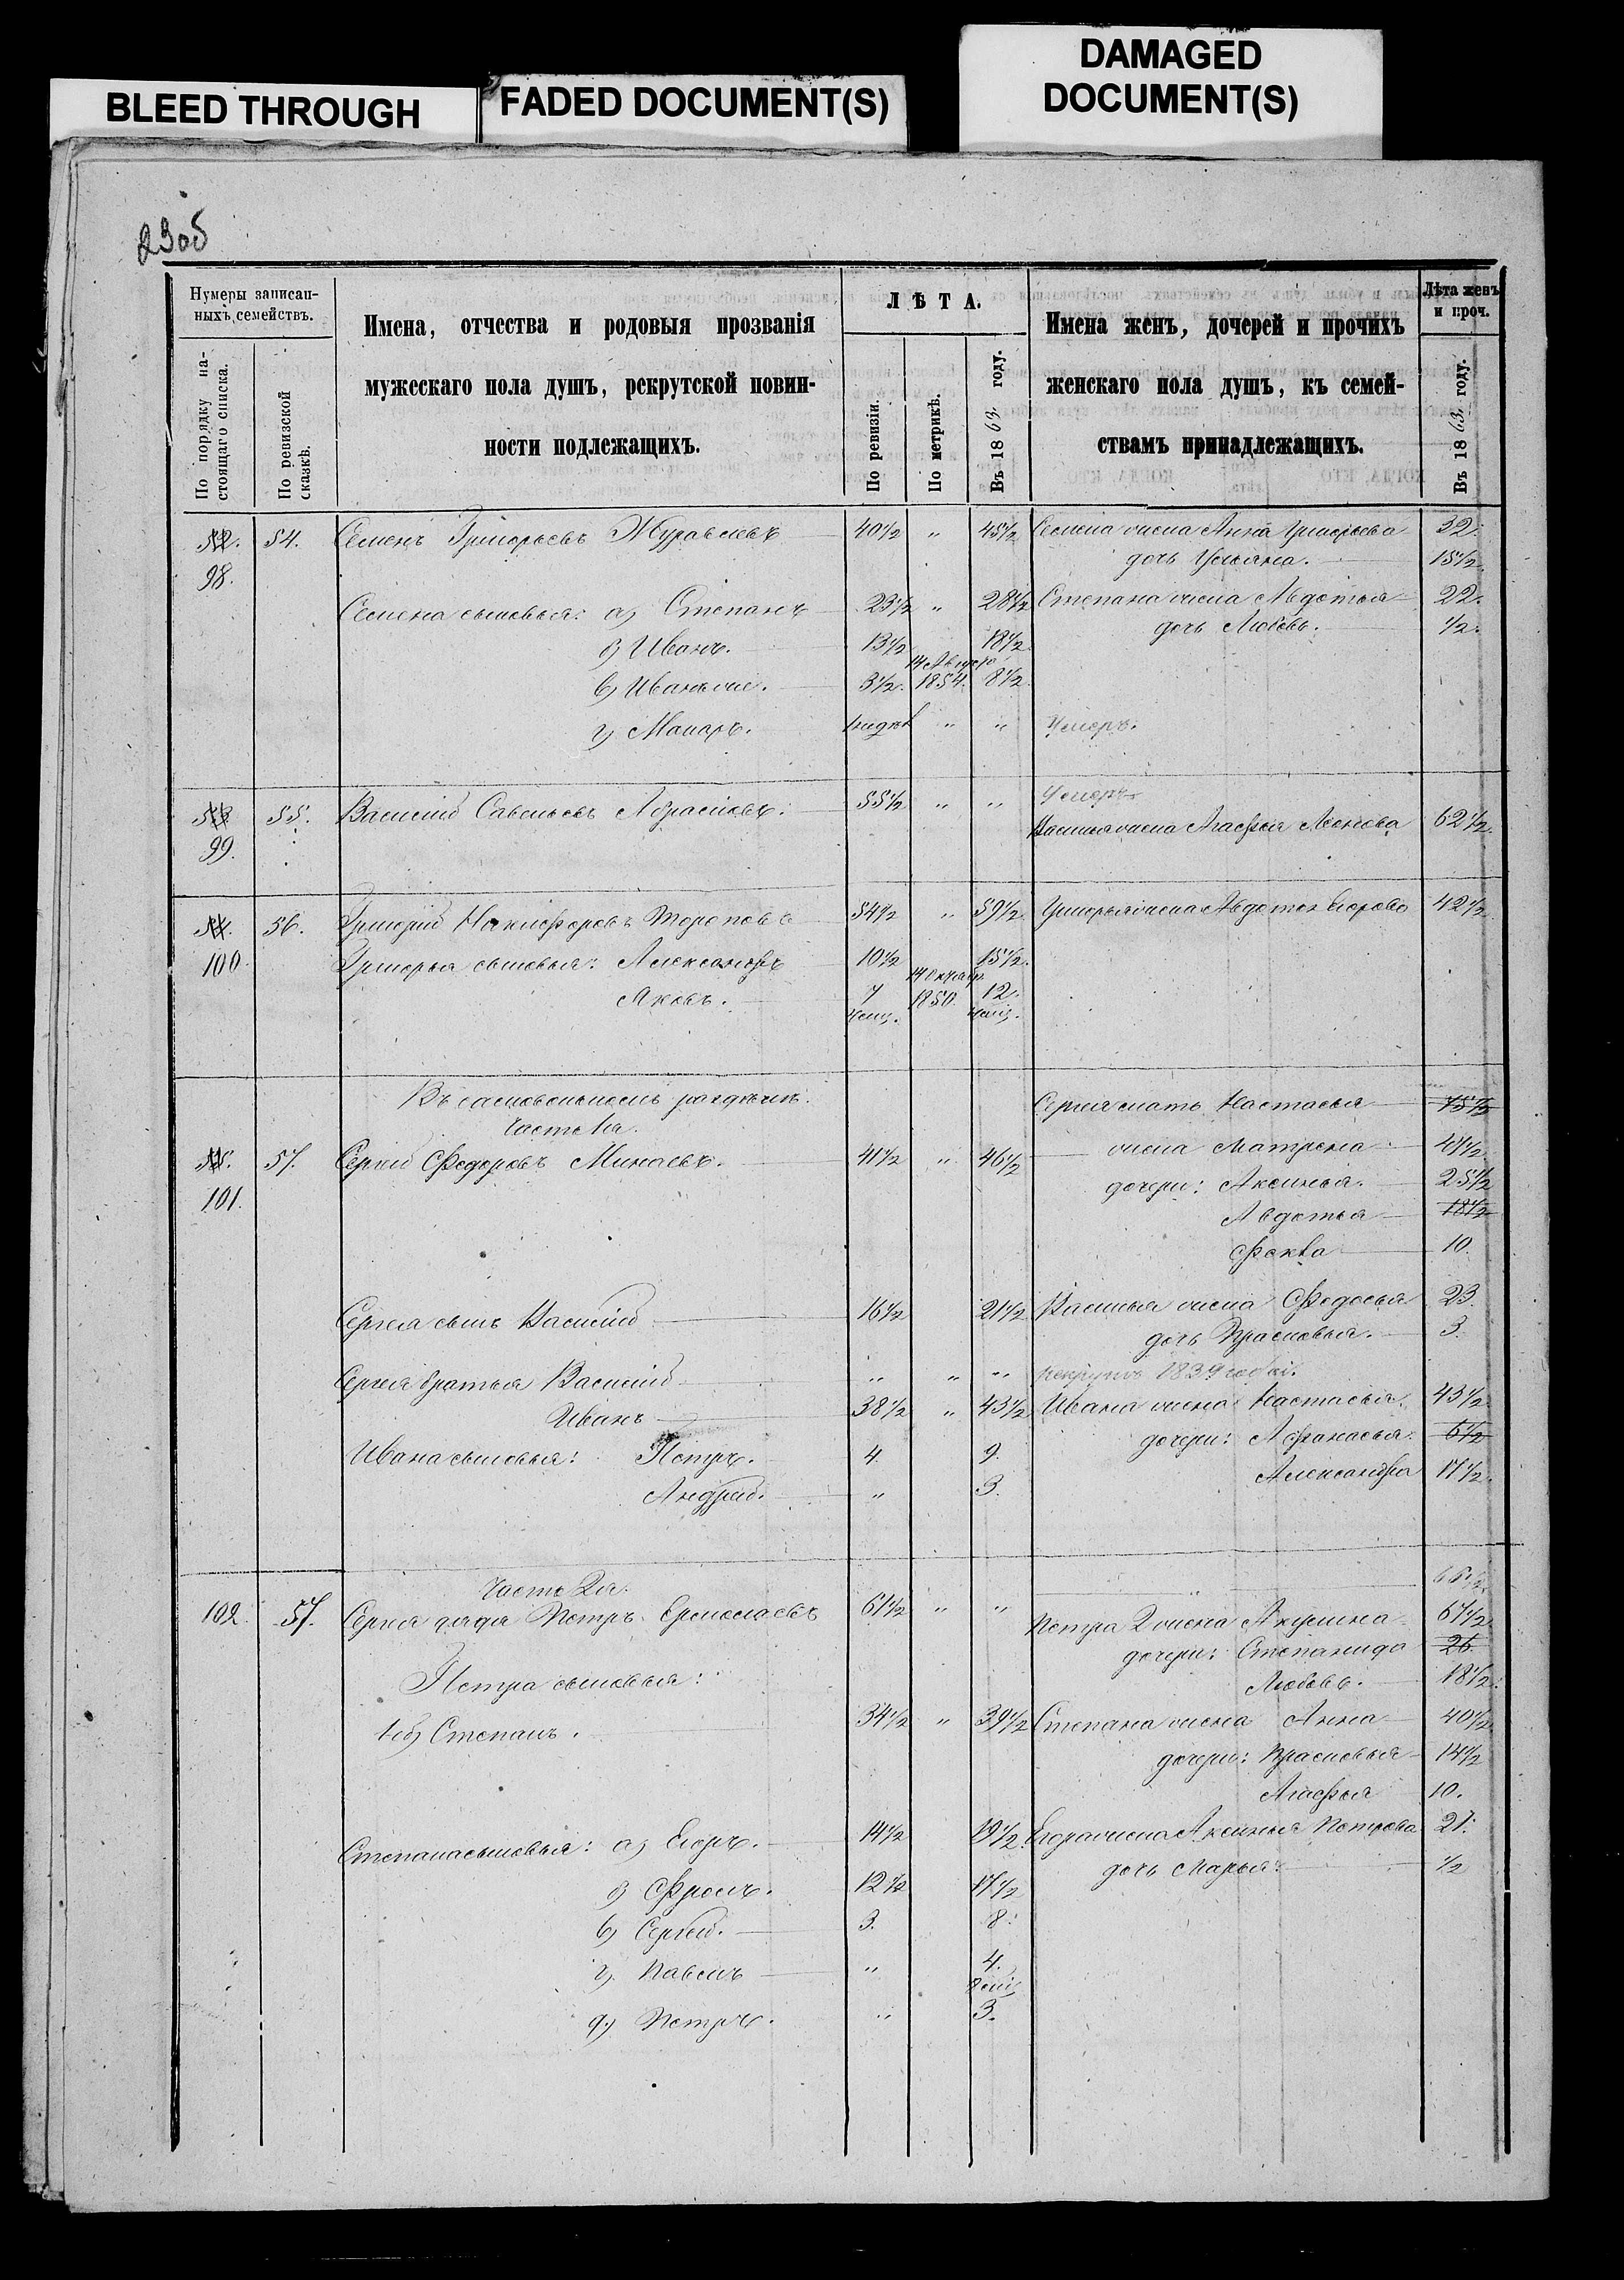 BLEED THROUGH
FADED DOCUMENT(S)
DAMAGED
DOCUMENT(S)
29об
Нумеры записан-
ныхъ семействъ.
По порядку на-
стоящаго списка.
По ревизской
сказкѣ.
Имена, отчества и родовыя прозванія
мужескаго пола душъ, рекрутской повин-
ности подлежащихъ.
ЛѢТА.
По ревизіи.
По метрикѣ.
Въ 1863 году.
Имена женъ, дочерей и прочихъ
женскаго пола душъ, къ семей-
ствамъ принадлежащихъ.
Лѣта женъ
и проч.
Въ 1863 году.
52. 54. Семенъ Григорьевъ Журавлевъ 40½ " 45½ Семена жена Анна Григорьева 32.
98. дочь Ульяна. 15½
Семена сыновья: а) Степанъ 23½ " 28½ Степана жена Авдотья 22.
б) Иванъ. 13½ 18½ дочь Любовь. ½.
14 Августа
в) Иванъ же. 3½. 1854. 8½
г) Макаръ. " " Умеръ.
53 55. Василий Савельевъ Абрамовъ. 55½ " " Умеръ
99. Василья жена Агафья Леонова 62½.
54. 56. Григорій Никифоровъ Тороповъ 54½ " 59½. Григорья жена Авдотья Егорова 42½
100. Григорья сыновья: Александръ 10½ 15½.
14 Октября
Яковъ. 7 1850. 12.
мѣсц. мѣсц.
Въ самовольномъ раздѣлѣ.
Часть 1я.
Сергея мать Настасья 75½
55. 57. Сергей Федоровъ Минаевъ. 41½ " 46½ жена Матрена 41½.
101. дочери: Аксинья. 25½
Авдотья 18½
Фекла 10.
Сергея сынъ Василий 16½ 21½ Василья жена Федосья 23.
дочь Прасковья. 3.
Сергея братья Василий " " " рекрутъ 1839 года.
Иванъ 38½ " 43½ Ивана жена Настасья. 43½
Ивана сыновья: Петръ. 4. 9. дочери: Афанасья. 6½
Андрей. " 3. Александра 17½.
Часть 2я. 66½.
102. 57. Сергея дядя Петръ Ермолаевъ 61½ " " Петра 2 жена Акулина 67½.
дочери: Степанида 26.
Петра сыновья: Любовь. 18½.
1й) Степанъ. 34½ " 39½ Степана жена Анна 40½.
дочери: Прасковья 14½
Агафья 10.
Степана сыновья: а) Егоръ. 14½ 19½. Егора жена Аксинья Петрова 21.
дочь Марья. ½
б) Фролъ. 12½ 17½
в) Сергей. 3. 8.
г) Павелъ " 4.
мѣсц
д) Петръ. " 3.